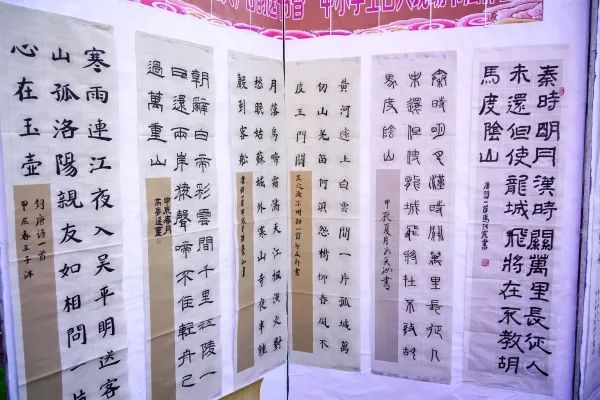 中小学生百人现场书法
秦時明月漢時關萬里長征人
未還但使龍城飛將在不教胡
馬度陰山
唐詩一首
秦時明月漢時關萬里長征人
未還但使龍城飛將在不教胡
馬度陰山
甲辰夏月
黄河遠上白雲間一片孤城萬
仞山羌笛何須怨楊柳春風不
度玉門關
王之渙涼州詞一首
月落烏啼霜滿天江楓漁火對
愁眠姑蘇城外寒山寺夜半鐘
聲到客船
朝辭白帝彩雲間千里江陵一
日還兩岸猿聲啼不住輕舟已
過萬重山
甲辰夏月
寒雨連江夜入吴平明送客
山孤洛陽親友如相問一片
心在玉壺
錄唐詩一首
甲辰春王子沐